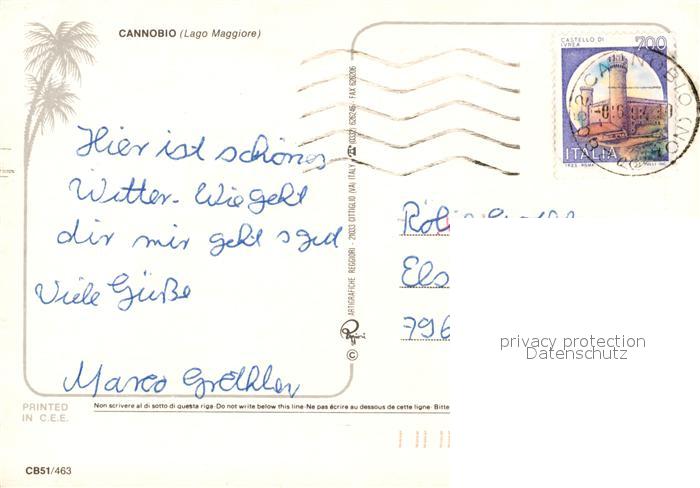 CANNOBIO (Lago Maggiore)
CASTELLO DI
IVREA
700
ITALIA
Hier ist schönes
Witter. Wie geht
dir mir geht s gut
Viele Grüße
Marco
Els
796
ARTIGRAFICHE REGGIORI - 21033 CITTIGLIO (VA) ITALY (0332) 626245 - FAX 626206
©
privacy protection
Datenschutz
PRINTED
IN C.E.E.
Non scrivere al di sotto di questa riga-Do not write below this line-Ne pas écrire au dessous de cette ligne- Bitte
CB51/463